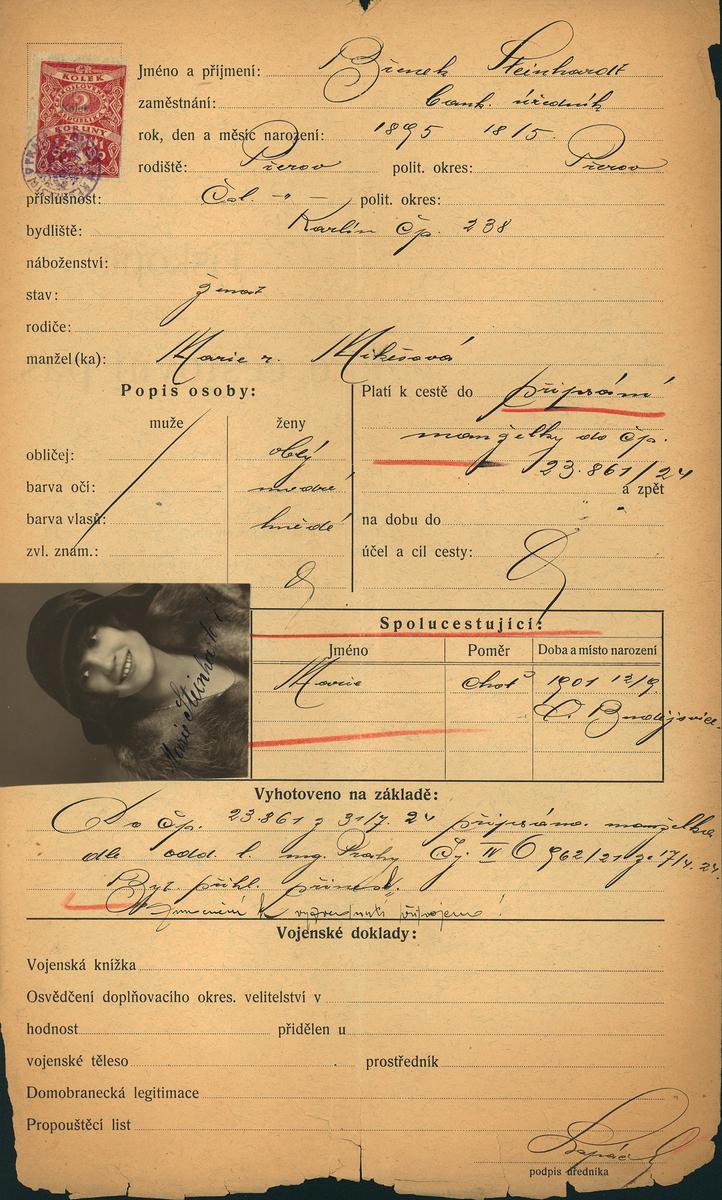 KOLEK
KORUNY
Jméno a příjmení: Steinhardt
zaměstnání: bank. úředník
rok, den a měsíc narození: 1895 18/5.
rodiště: polit. okres:
příslušnost: Čsl. -"- polit. okres:
bydliště: Karlín čp. 238
náboženství:
stav: ženat
rodiče:
manžel(ka): Marie r. Mikešová
Popis osoby:
muže ženy
obličej: oblý
barva očí: modré
barva vlasů: hnědé
zvl. znam.:
Platí k cestě do připsání
manželky do čp.
23.861/24
a zpět
na dobu do
účel a cíl cesty:
Marie Steinhardt
Spolucestující:
Jméno Poměr Doba a místo narození
Marie choť 1901 12/9.
Č. Budějovice
Vyhotoveno na základě:
Do čp. 23.861 z 31/7. 24 připsána manželka
dle odd. l. mg. Prahy Čj IV 6 962/21 z 17/4. 24.
Byt. přihl.
Vojenské doklady:
Vojenská knížka
Osvědčení doplňovacího okres. velitelství v
hodnost přidělen u
vojenské těleso prostředník
Domobranecká legitimace
Propouštěcí list
podpis úředníka